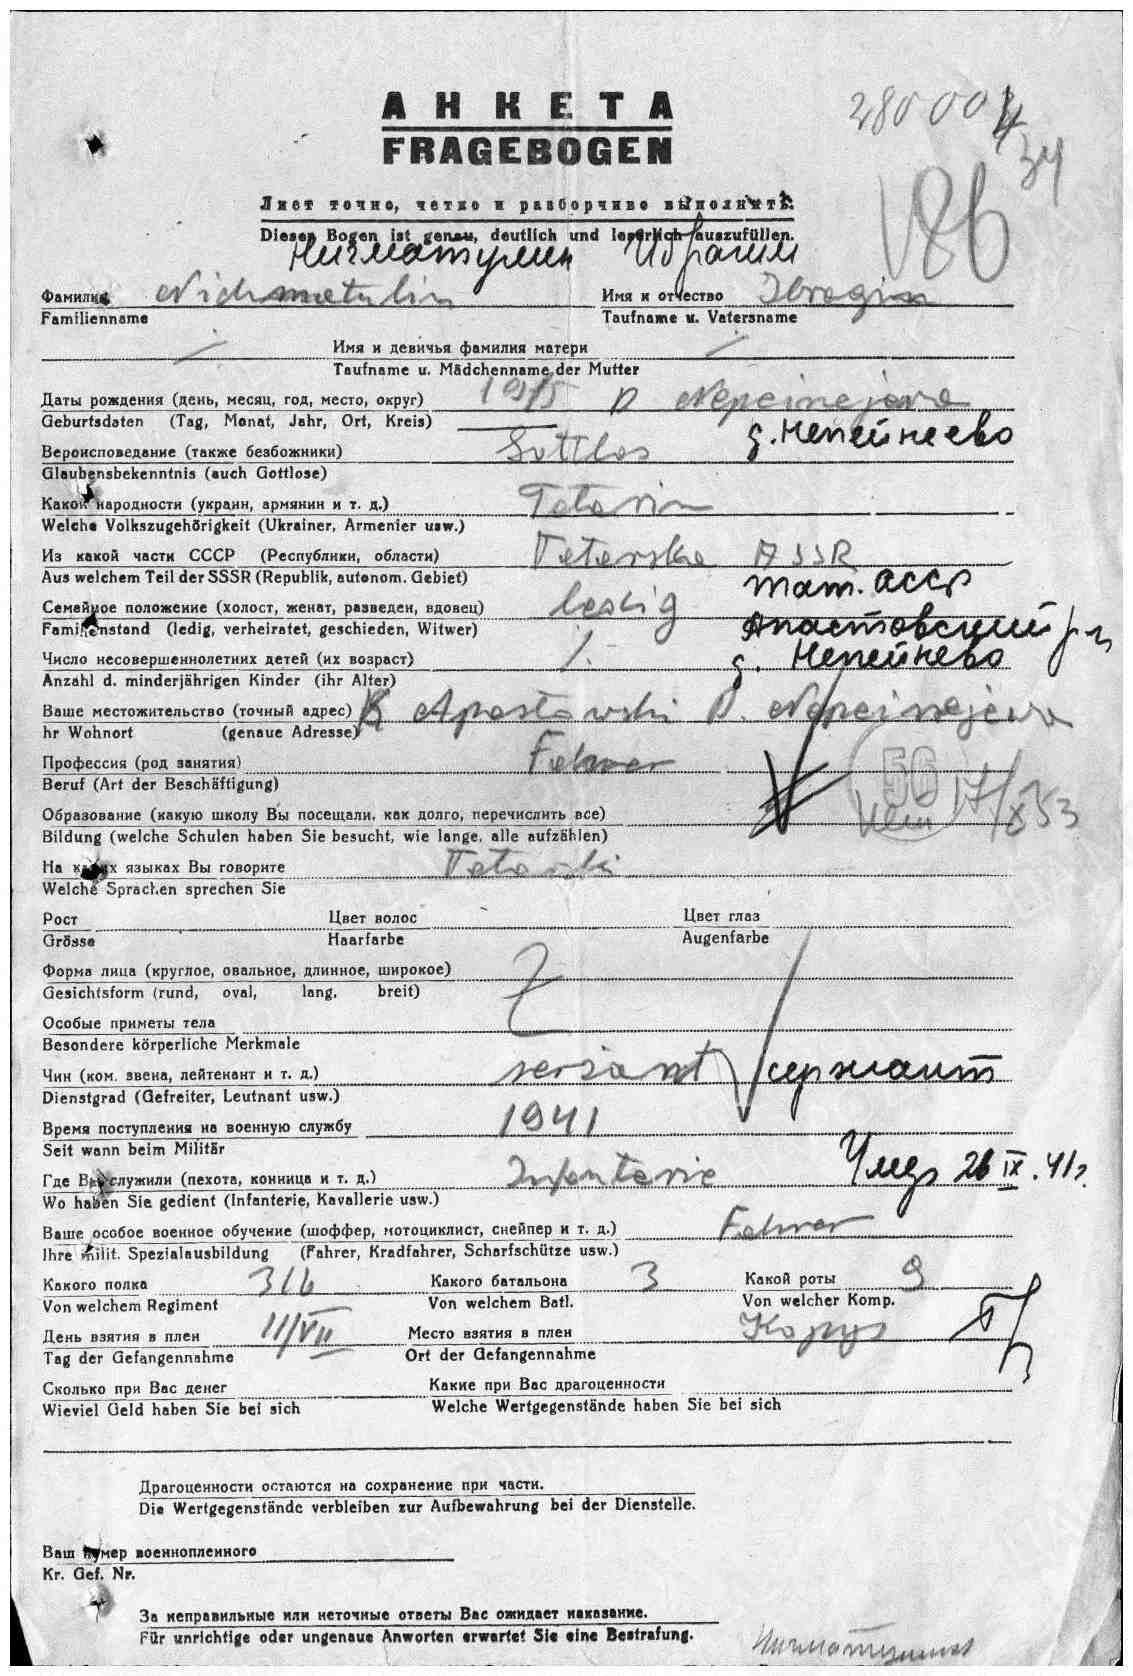 АНКЕТА
FRAGEBOGEN
Лист точно, четко и разборчиво выполнить.
Diesen Bogen ist genau, deutlich und leserlich auszufüllen.
Нигматулин Ибрагим
Фамилия Nichmatulin Имя и отчество Ibragim
Familienname Taufname u. Vatersname
Имя и девичья фамилия матери
Taufname u. Mädchenname der Mutter
Даты рождения (день, месяц, год, место, округ) 1915 D Nepeinejewa
Geburtsdaten (Tag, Monat, Jahr, Ort, Kreis) д. Непейнеево
Вероисповедание (также безбожники) Gottlos
Glaubensbekenntnis (auch Gottlose)
Какой народности (украин, армянин и т. д.) Tatarin
Welche Volkszugehörigkeit (Ukrainer, Armenier usw.)
Из какой части СССР (Республики, области) Tatarska ASSR
Aus welchem Teil der SSSR (Republik, autonom. Gebiet) Тат. АССР
Семейное положение (холост, женат, разведен, вдовец) ledig
Familienstand (ledig, verheiratet, geschieden, Witwer) Апастовский р-н
Число несовершеннолетних детей (их возраст) д. Непейнево
Anzahl d. minderjährigen Kinder (ihr Alter)
Ваше местожительство (точный адрес) K Apastowski D. Nepeinejewa
hr Wohnort (genaue Adresse)
Профессия (род занятия) Fahrer
Beruf (Art der Beschäftigung) 56
Образование (какую школу Вы посещали, как долго, перечислить все)
Bildung (welche Schulen haben Sie besucht, wie lange, alle aufzählen)
На каких языках Вы говорите Tatarski
Welche Sprachen sprechen Sie
Рост Цвет волос Цвет глаз
Grösse Haarfarbe Augenfarbe
Форма лица (круглое, овальное, длинное, широкое)
Gesichtsform (rund, oval, lang, breit)
Особые приметы тела
Besondere körperliche Merkmale
Чин (ком. звена, лейтенант и т. д.) sersant сержант
Dienstgrad (Gefreiter, Leutnant usw.)
Время поступления на военную службу 1941
Seit wann beim Militär
Где Вы служили (пехота, конница и т. д.) Infanterie Умер 26 IX. 41 г.
Wo haben Sie gedient (Infanterie, Kavallerie usw.)
Ваше особое военное обучение (шоффер, мотоциклист, снейпер и т. д.) Fahrer
Ihre milit. Spezialausbildung (Fahrer, Kradfahrer, Scharfschütze usw.)
Какого полка 316 Какого батальона 3 Какой роты 9
Von welchem Regiment Von welchem Batl. Von welcher Komp.
День взятия в плен 11/VII Место взятия в плен Kopys
Tag der Gefangennahme Ort der Gefangennahme
Сколько при Вас денег Какие при Вас драгоценности
Wieviel Geld haben Sie bei sich Welche Wertgegenstände haben Sie bei sich
Драгоценности остаются на сохранение при части.
Die Wertgegenstände verbleiben zur Aufbewahrung bei der Dienstelle.
Ваш номер военнопленного
Kr. Gef. Nr.
За неправильные или неточные ответы Вас ожидает наказание.
Für unrichtige oder ungenaue Anworten erwartet Sie eine Bestrafung.